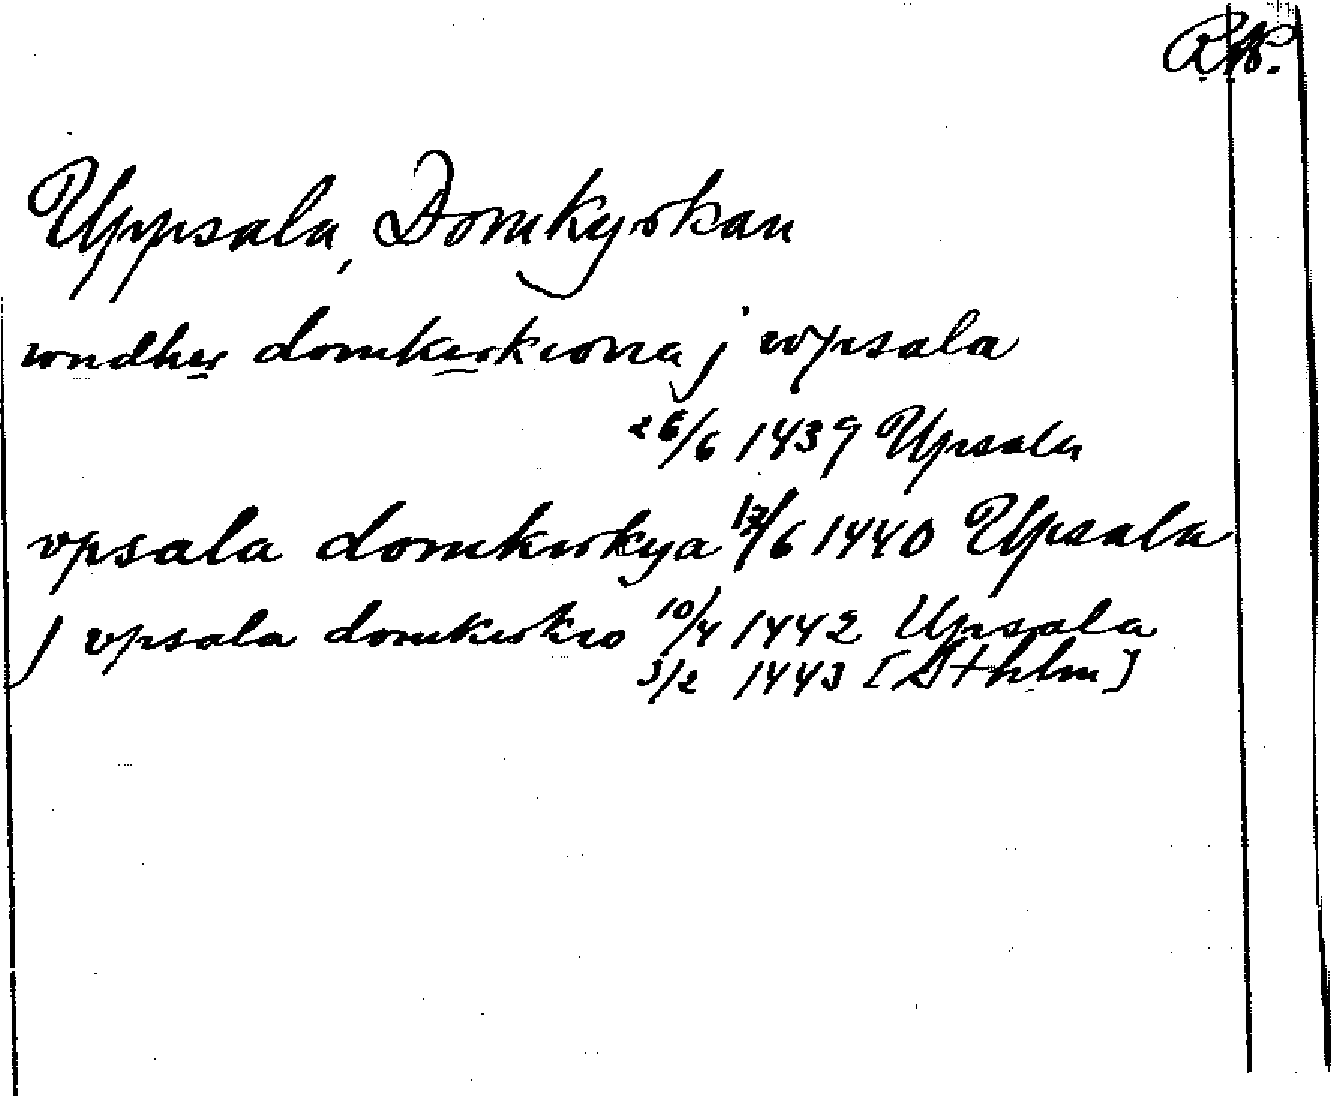 Uppsala, Domkyrkan
wndher domkirkiona j wpsala
26/6 1439 Upsala
vpsala domkirkya 12/6 1440 Upsala
j vpsala domkirkio 10/4 1442 Upsala
3/2 1443 [Sthlm]